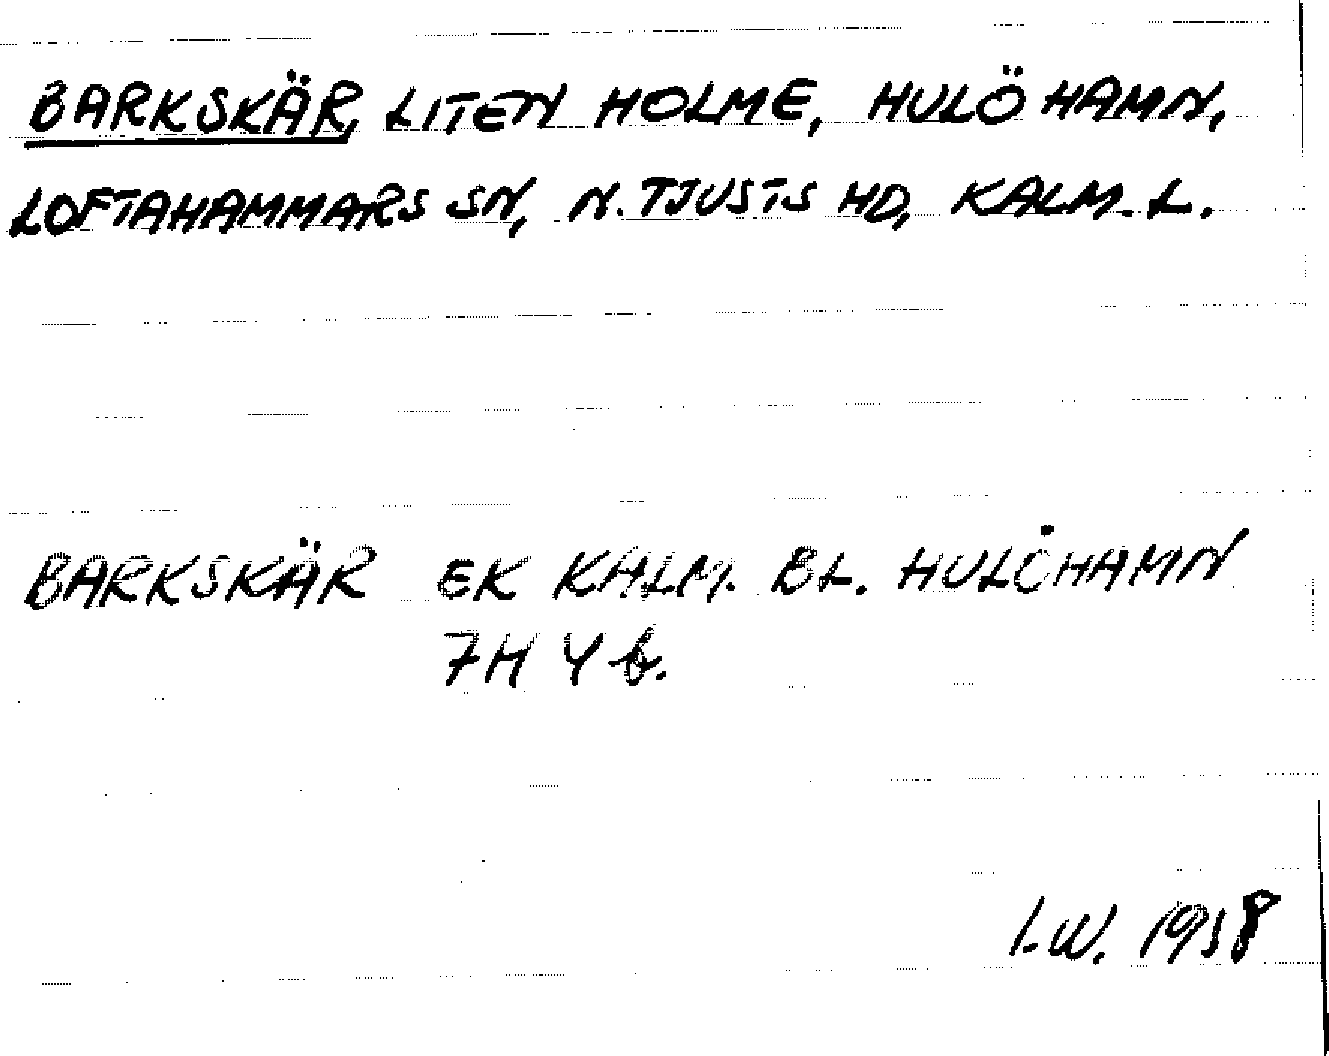 BARKSKÄR, LITEN HOLME, HULÖHAMN,
LOFTAHAMMARS SN, N. TJUSTS HD, KALM. L.
BARKSKÄR EK KALM. BL. HULÖHAMN
7H 4 b.
I.W. 1958